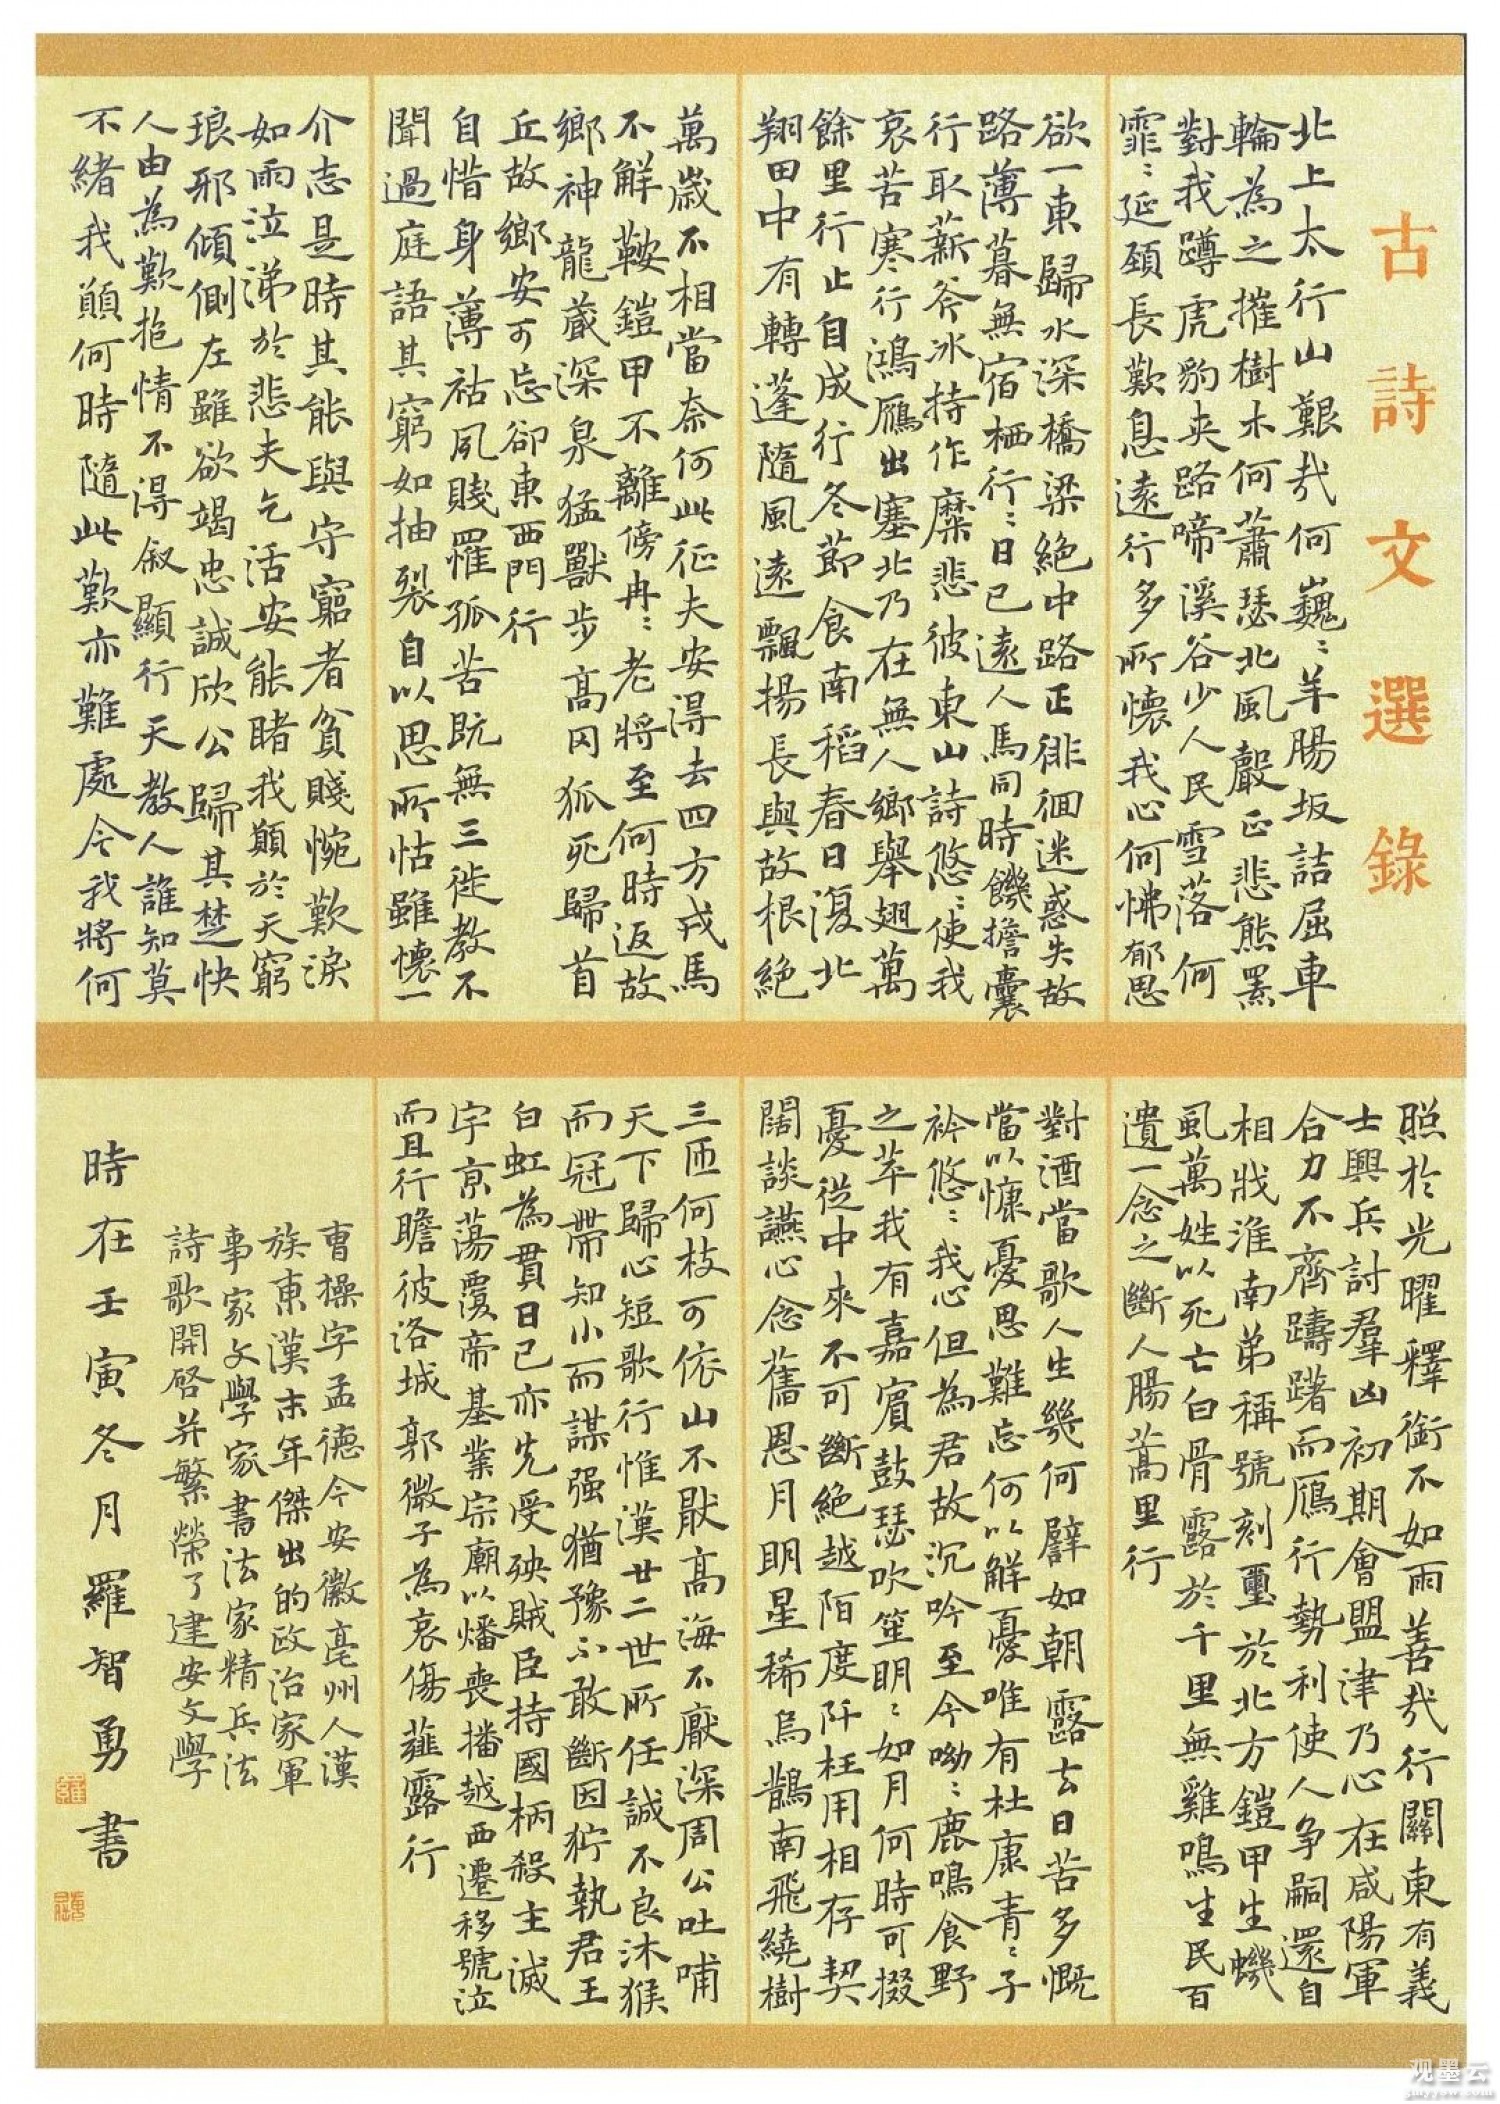 古詩文選錄
北上太行山艱哉何巍〻羊腸坂詰屈車
輪為之摧樹木何蕭瑟北風聲正悲熊羆
對我蹲虎豹夾路啼溪谷少人民雪落何
霏〻延頸長歎息遠行多所懷我心何怫郁思
欲一東歸水深橋梁絕中路正徘徊迷惑失故
路薄暮無宿栖行〻日已遠人馬同時饑擔囊
行取薪斧冰持作糜悲彼東山詩悠〻使我
哀苦寒行鴻雁出塞北乃在無人鄉舉翅萬
餘里行止自成行冬節食南稻春日復北
翔田中有轉蓬隨風遠飄揚長與故根絕
萬歲不相當奈何此征夫安得去四方戎馬
不解鞍鎧甲不離傍冉〻老將至何時返故
鄉神龍藏深泉猛獸步高冈狐死歸首
丘故鄉安可忘卻東西門行
自惜身薄祜夙賤罹孤苦既無三徙教不
聞過庭語其窮如抽裂自以思所怙雖懷一
介志是時其能與守窮者貧賤惋歎淚
如雨泣涕於悲夫乞活安能睹我願於天窮
琅邪傾側左雖欲竭忠誠欣公歸其楚快
人由為歎抱情不得叙顯行天教人誰知莫
不緒我願何時隨此歎亦難處今我將何
照於光曜釋銜不如雨善哉行關東有義
士興兵討羣凶初期會盟津乃心在咸陽軍
合力不齊躊躇而雁行勢利使人爭嗣還自
相戕淮南弟稱號刻璽於北方鎧甲生蟣
虱萬姓以死亡白骨露於千里無雞鳴生民百
遺一念之斷人腸蒿里行
對酒當歌人生幾何譬如朝露去日苦多慨
當以慷憂思難忘何以解憂唯有杜康青〻子
衿悠〻我心但為君故沉吟至今呦〻鹿鳴食野
之苹我有嘉賓鼓瑟吹笙明〻如月何時可掇
憂從中來不可斷絕越陌度阡枉用相存契
闊談讌心念舊恩月明星稀烏鵲南飛繞樹
三匝何枝可依山不厭高海不厭深周公吐哺
天下歸心短歌行惟漢廿二世所任誠不良沐猴
而冠帶知小而謀强猶豫不敢斷因狩執君王
白虹為貫日已亦先受殃賊臣持國柄殺主滅
宇京蕩覆帝基業宗廟以燔喪播越西遷移號泣
而且行瞻彼洛城郭微子為哀傷薤露行
曹操字孟德今安徽亳州人漢
族東漢末年傑出的政治家軍
事家文學家書法家精兵法
詩歌開啓并繁榮了建安文學
時在壬寅冬月羅智勇書
观墨云